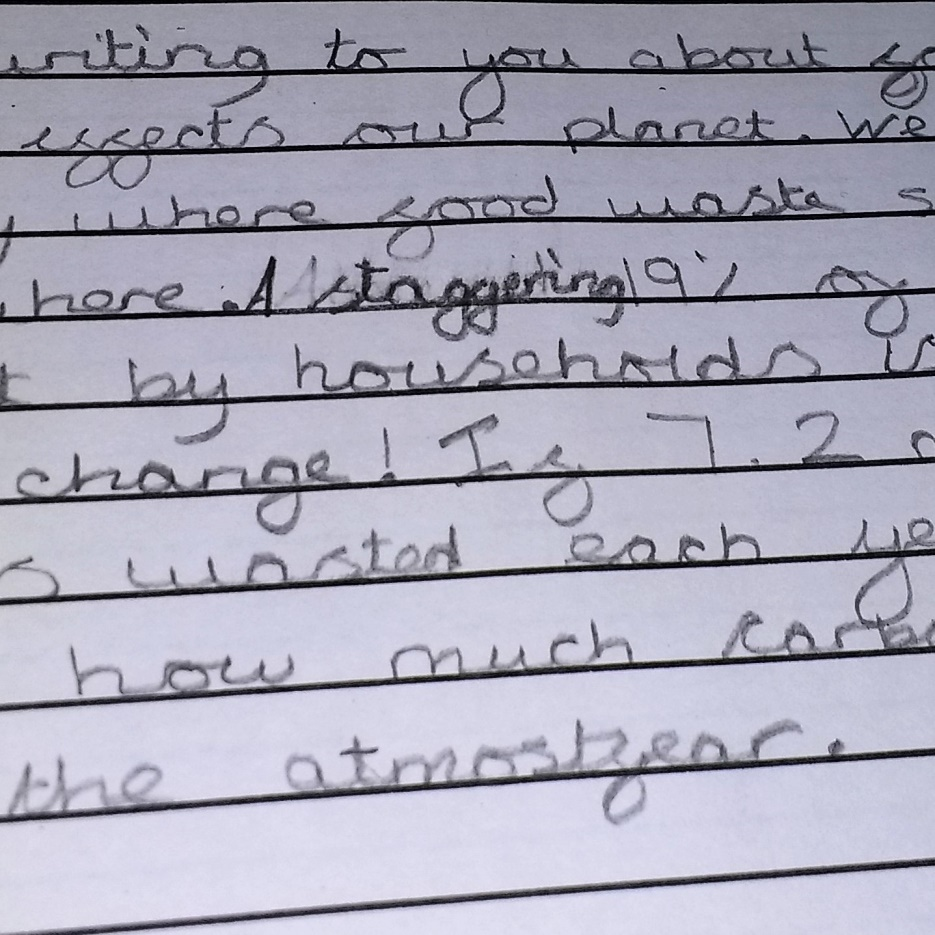 writing to you about
effects our planet. We
where food waste
here. A staggering 19% of
by households is
change! If 7.2
wasted each
how much
the atmosfear.